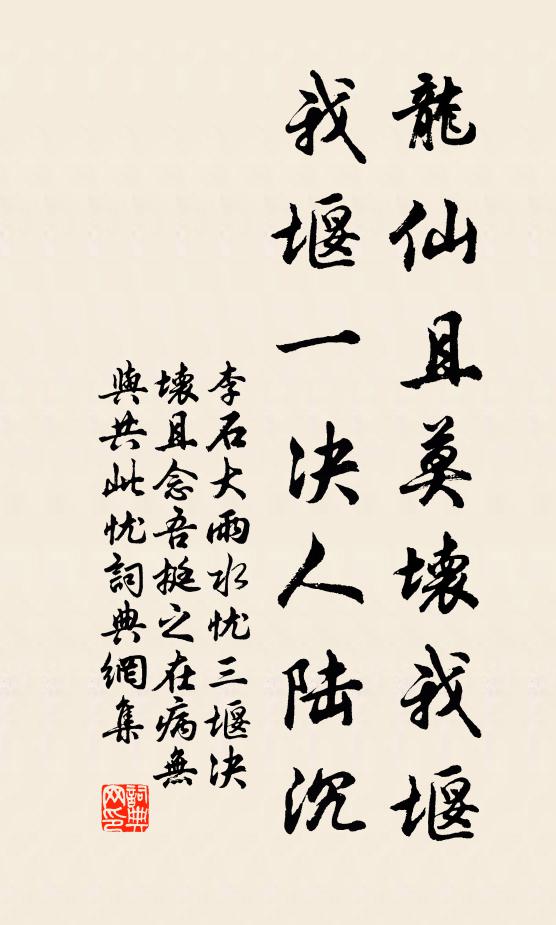 龍仙且莫壞我堰
我堰一决人陆沉
李石大雨水忧三堰决
壞且念吾挺之在病無
與共此忧詞典網集
詞典
网印